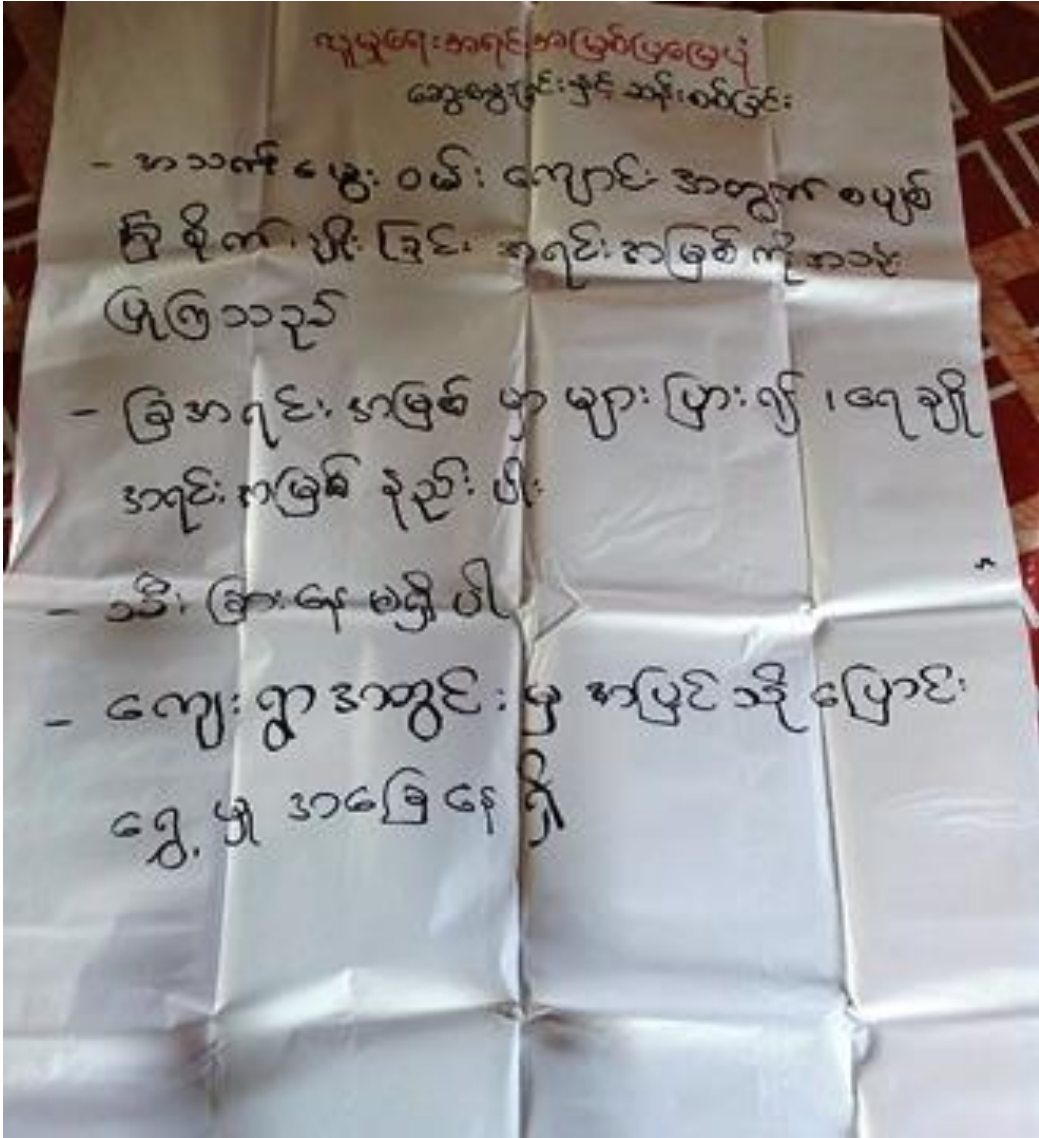 လူမှုရေးအရင်းအမြစ်ပြမြေပုံ
ဆွေးနွေးခြင်းနှင့် ဆန်းစစ်ခြင်း
- အသက်မွေးဝမ်းကျောင်းအတွက် စပျစ်
ခြံစိုက်ပျိုးခြင်း အရင်းအမြစ်ကိုအသုံး
ပြုကြသည်
- ခြံအရင်းအမြစ်မှာများပြား၍ ၊ ရေချို
အရင်းအမြစ်နည်းပါး
- သီးခြားနေမရှိပါ
- ကျေးရွာအတွင်းမှ အပြင်သို့ပြောင်း
ရွှေ့မှုအခြေနေရှိ